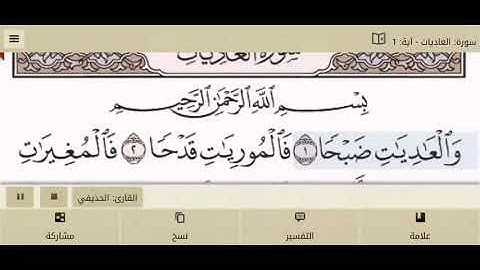 سورة: العاديات - آية: 1
سورة العاديات
بِسْمِ اللَّهِ الرَّحْمَٰنِ الرَّحِيمِ
وَالْعَادِيَاتِ ضَبْحًا ١ فَالْمُورِيَاتِ قَدْحًا ٢ فَالْمُغِيرَاتِ
القارئ: الحذيفي
علامة
التفسير
نسخ
مشاركة